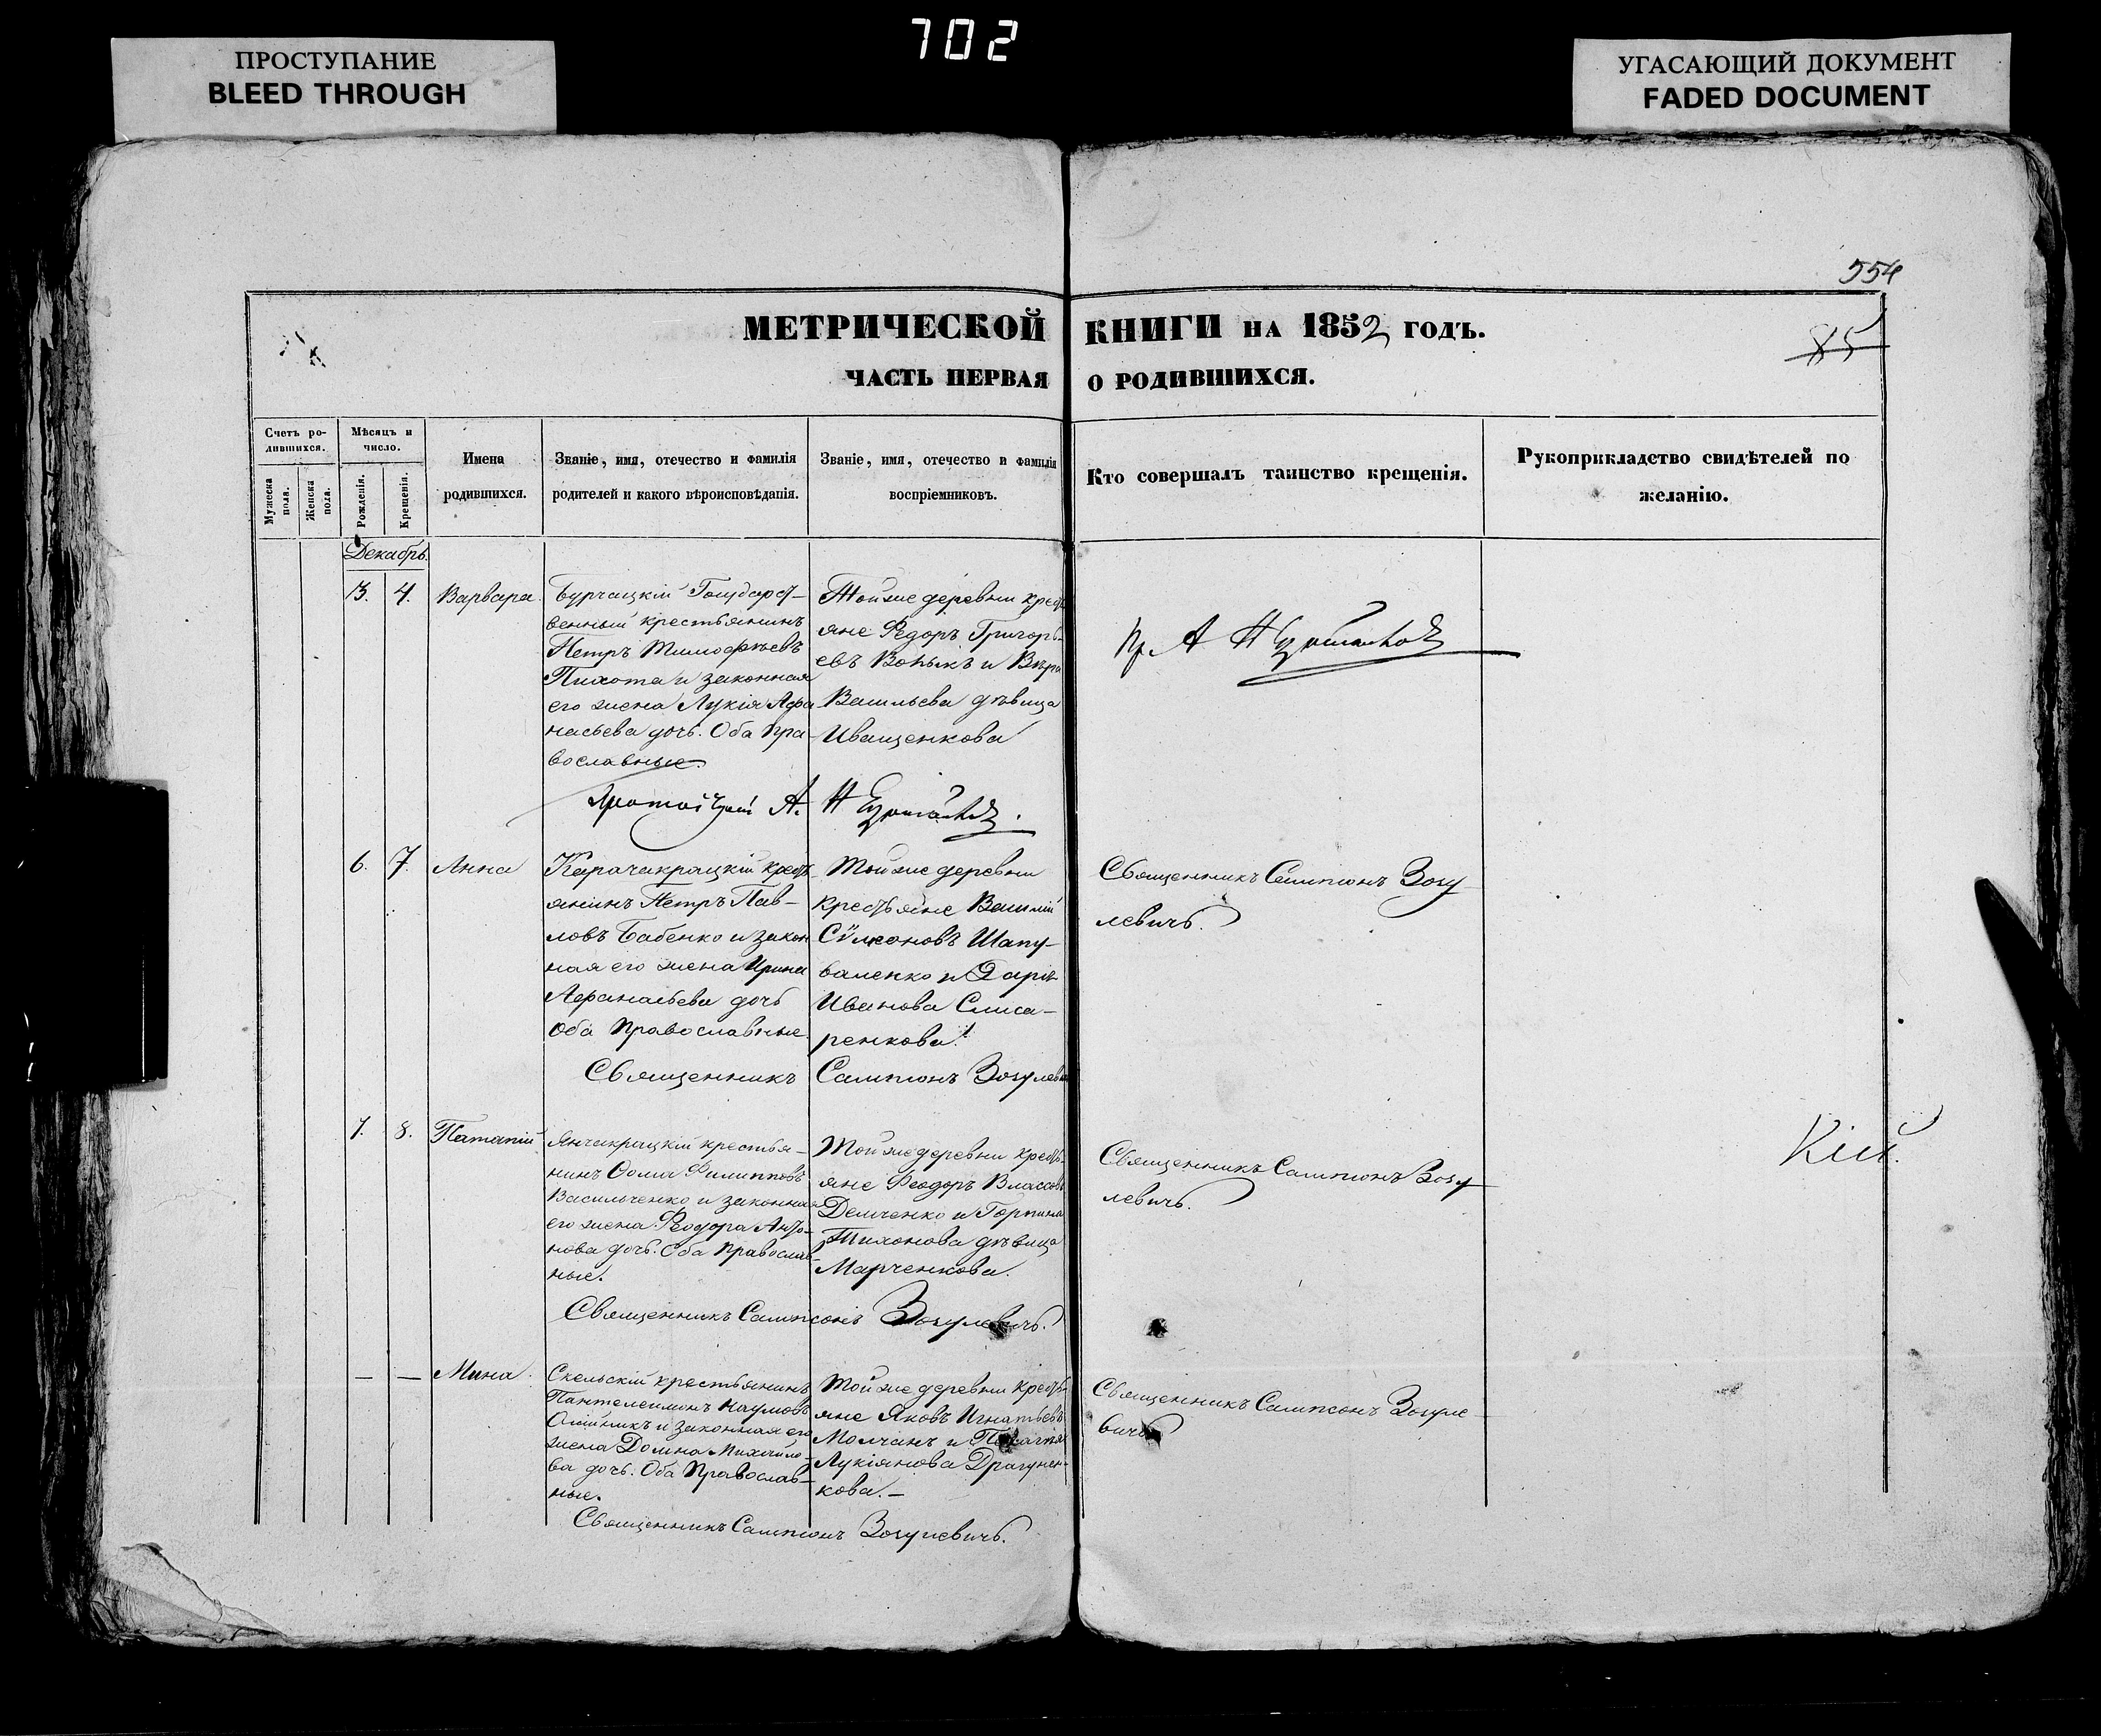 702
ПРОСТУПАНИЕ
BLEED THROUGH
УГАСАЮЩИЙ ДОКУМЕНТ
FADED DOCUMENT
554
85
МЕТРИЧЕСКОЙ КНИГИ НА 1852 ГОДЪ.
ЧАСТЬ ПЕРВАЯ О РОДИВШИХСЯ.
Счетъ ро-
дившихся.
Мужеска
пола.
Женска
пола.
Мѣсяцъ и
число.
Рожденія.
Крещенія.
Имена
родившихся.
Званіе, имя, отечество и фамилія
родителей и какого вѣроисповѣданія.
Званіе, имя, отечество и фамилія
воспріемниковъ.
Кто совершалъ таинство крещенія.
Рукоприкладство свидѣтелей по
желанію.
Декабрь.
3. 4. Варвара
Бурчацкій Государст-
венный крестьянинъ
Петръ Тимофѣевъ
Пихота и законная
его жена Лукія Афа-
насьева дочь. Оба пра-
вославные.
Тойже деревни крест
яне Федоръ Григорь-
евъ и Вѣра
Васильева дѣвица
Иващенкова
Пр. А
Протоіерей А.
6. 7. Анна
Карачакрацкій крест-
янинъ Петръ Пав-
ловъ Бабенко и закон
ная его жена Ирина
Афанасьева дочь
Оба Православные.
Тойже деревни
крестьяне Василій
Сѵмеоновъ Шапу-
валенко и Дарія
Иванова Слиса-
ренкова.
Священникъ Сампсонъ Зозу
левичъ.
Священникъ Сампсонъ Зозулеви
7. 8. Патапій
Янчакрацкій крестья-
нинъ Ѳома Филипповъ
Васильченко и законная
его жена Феодора Анто-
нова дочь. Оба Православ-
ные.
Тойже деревни кресть-
яне Феодоръ Власовъ
Демченко и Горпина
Тихонова дѣвица
Марченкова.
Священникъ Сампсонъ Зозу
левичъ.
Кій.
Священникъ Сампсонъ Зозулевичъ.
— — Мина
Скельскій крестьянинъ
Пантелеимонъ Наумовъ
Олійникъ и законная его
жена Домна Михайло-
ва дочь. Оба Православ-
ные.
Тойже деревни кресть-
яне Яковъ Игнатьевъ
Молчанъ и Пелагія
Лукіянова Драгунен-
кова.—
Священникъ Сампсонъ Зозуле-
вичъ
Священникъ Сампсонъ Зозулевичъ.